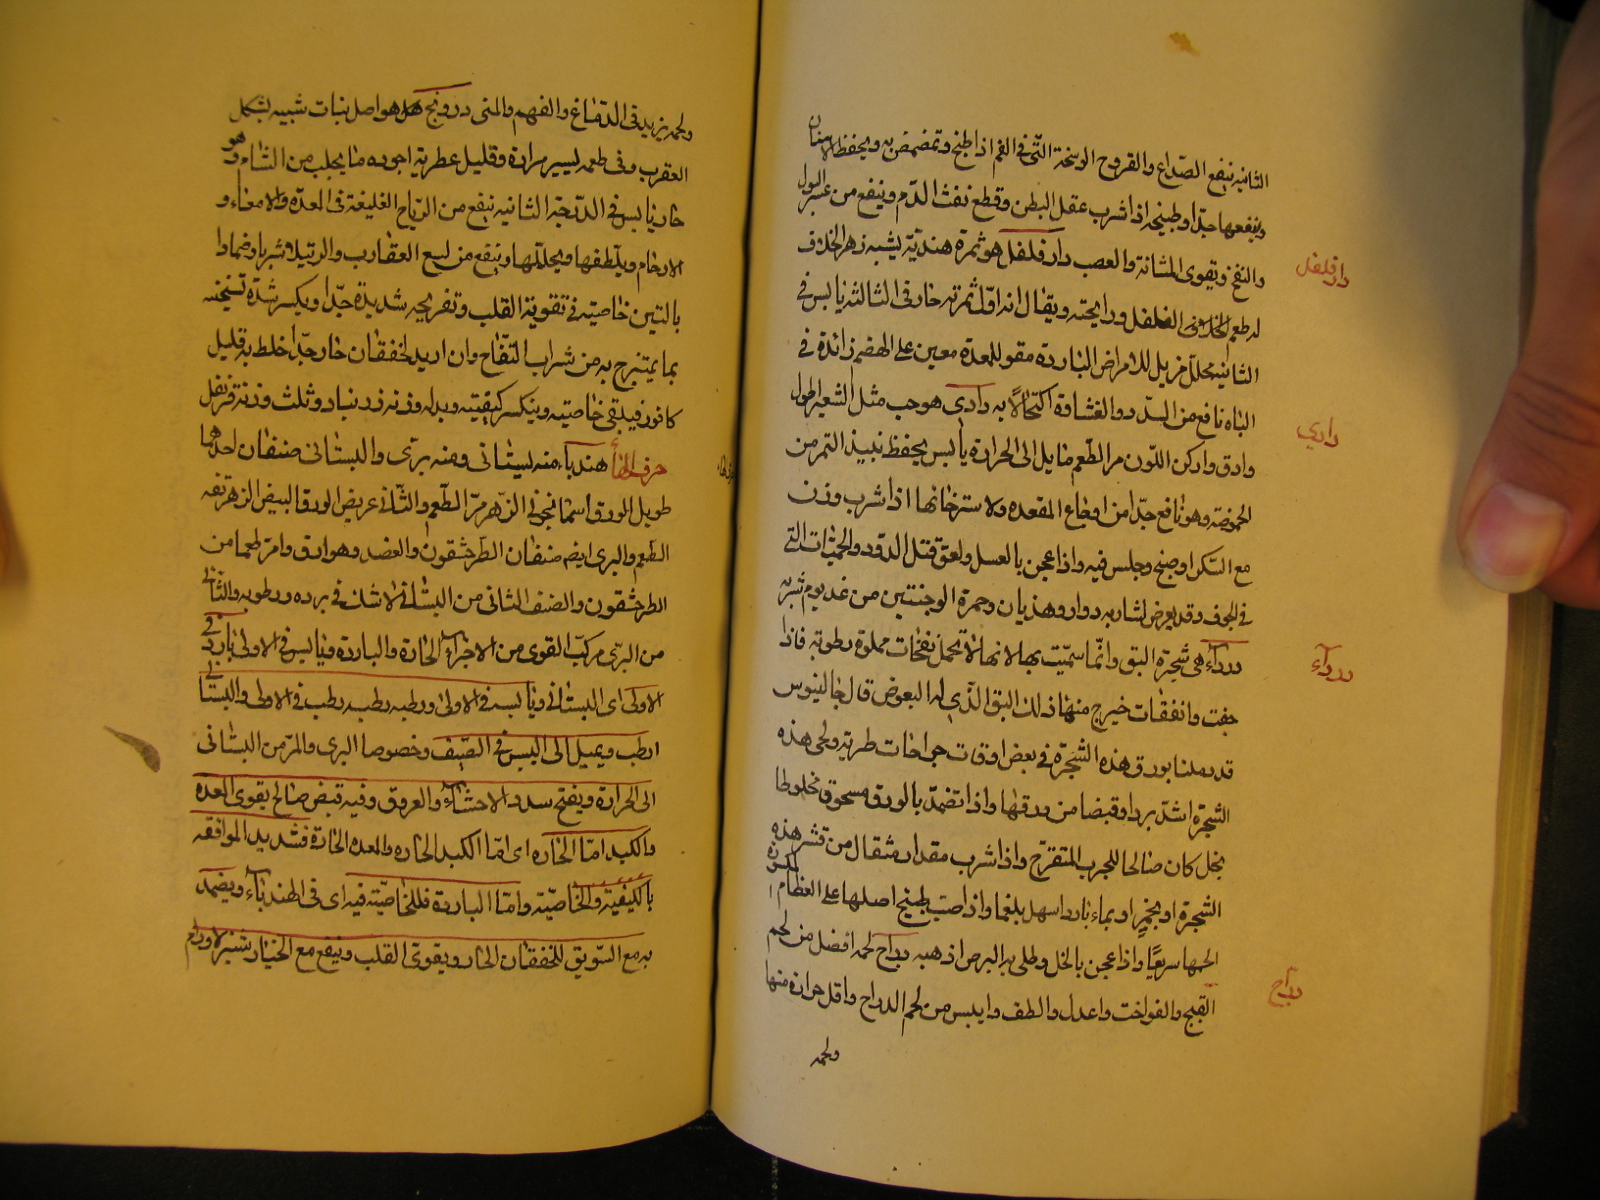 الثانية ينفع الصداع والقروح الوسخة التى فى الفم اذا طبخ وتمضمض به ويحفظ الاسنان
وينفعها جدا وطبيخه اذا شرب عقل البطن وقطع نفث الدم وينفع من عسر البول
والنفخ ويقوى المثانة والعصب دار فلفل هو ثمرة هندية يشبه زهر الخلاف
له طعم الفلفل ورايحته ويقال انه اول ثمرته حار فى الثالثه يابس فى
دار فلفل
الثانيه محلل مزيل للامراض الباردة مقو للمعدة معين على الهضم زائدة فى
الباه نافع من السدد والغشاوة اكتحالا به دادى هو حب مثل الشعير اطول
وادق وادكن اللون مر الطعم مايل الى الحرارة يابس يحفظ نبيذ التمر من
دادي
الحموضة وهو نافع جدا من اوجاع المقعده ولاسترخائها اذا شرب وزن
مع السكر او طبخ وجلس فيه واذا عجن بالعسل ولعق قتل الدود والحيات التى
فى الجوف وقد يعرض لشاربه دوار وهذيان وحمرة الوجنتين من غد يوم شربه
درداء هى شجرة البق وانما سميت بها لانها تحمل نفخات مملوة رطوبة فاذا
درداء
جفت وانفقات خرج منها ذلك البق الذى له البعوض قال جالينوس
قد دملنا بورق هذه الشجرة فى بعض اوقات جراحات طرية ولحى هذه
الشجرة اشد بردا وقبضا من ورقها واذا تضمد بالورق مسحوق مخلوطا
بخل كان صالحا للجرب المتقرح واذا شرب مقدار مثقال من قشر هذه
الشجرة او بخمر او بماء بارد اسهل بلغما واذا صب طبيخ اصلها على العظام المكسورة
الحمها سريعا واذا عجن بالخل وطلى به البرص اذهبه دراج لحمه افضل من لحم
القبج والفواخت واعدل والطف وايبس من لحم الدراج واقل حرارة منها
دراج
ولحمه
ولحمه يزيد فى الدماغ والفهم والمنى درونج هو اصل نبات شبيه بشكل
العقرب وفى طعمه يسير مرارة وقليل عطرية اجوده ما يجلب من الشاء وهو
حار يابس فى الدرجة الثانيه ينفع من الرياح الغليظة فى المعدة والامعاء و
الارحام ويلطفها ويحللها وينفع من لسع العقارب والرتيلا شربا وضمادا
بالتين خاصيته فى تقوية القلب وتفريحه شديدة جدا ويكسر شدة تسخينه
بما يمتزج به من شراب التفاح وان اريد لخفقان حار جدا خلط به قليل
كافور فيبقى خاصيته وينكسر كيفيته وبدله وزنه زرنباد وثلث وزنه قرنفل
حرف الهاء هندباء منه بستانى ومنه برى والبستانى صنفان احدهما
طويل الورق اسمانجونى الزهر مر الطعم والثانى عريض الورق ابيض الزهر تفه
الطعم والبرى ايضا صنفان الطرخشقون والعضد وهو ادق وامر طعما من
الطرخشقون والصنف الثانى من البستانى لا شك فى برده ورطوبته والثانى
من البرى مركب القوى من الاجزاء الحارة والباردة ويابس فى الاولى بارد فى
الاولى اى البستانى ويابسه فى الاولى ورطبه رطب فى الاولى والبستانى
ارطب ويميل الى اليبس فى الصيف وخصوصا البرى والمر من البستانى
الى الحرارة ويفتح سدد الاحشاء والعروق وفيه قبض صالح يقوى المعدة
والكبد اما الحاره اى اما الكبد الحاره والمعده الحارة فشديد الموافقه
بالكيفية والخاصية واما الباردة فللخاصية فيه اى فى الهندباء ويضمد
به مع السويق للخفقان الحار ويقوى القلب وينفع مع الخيار شنبر لاورام